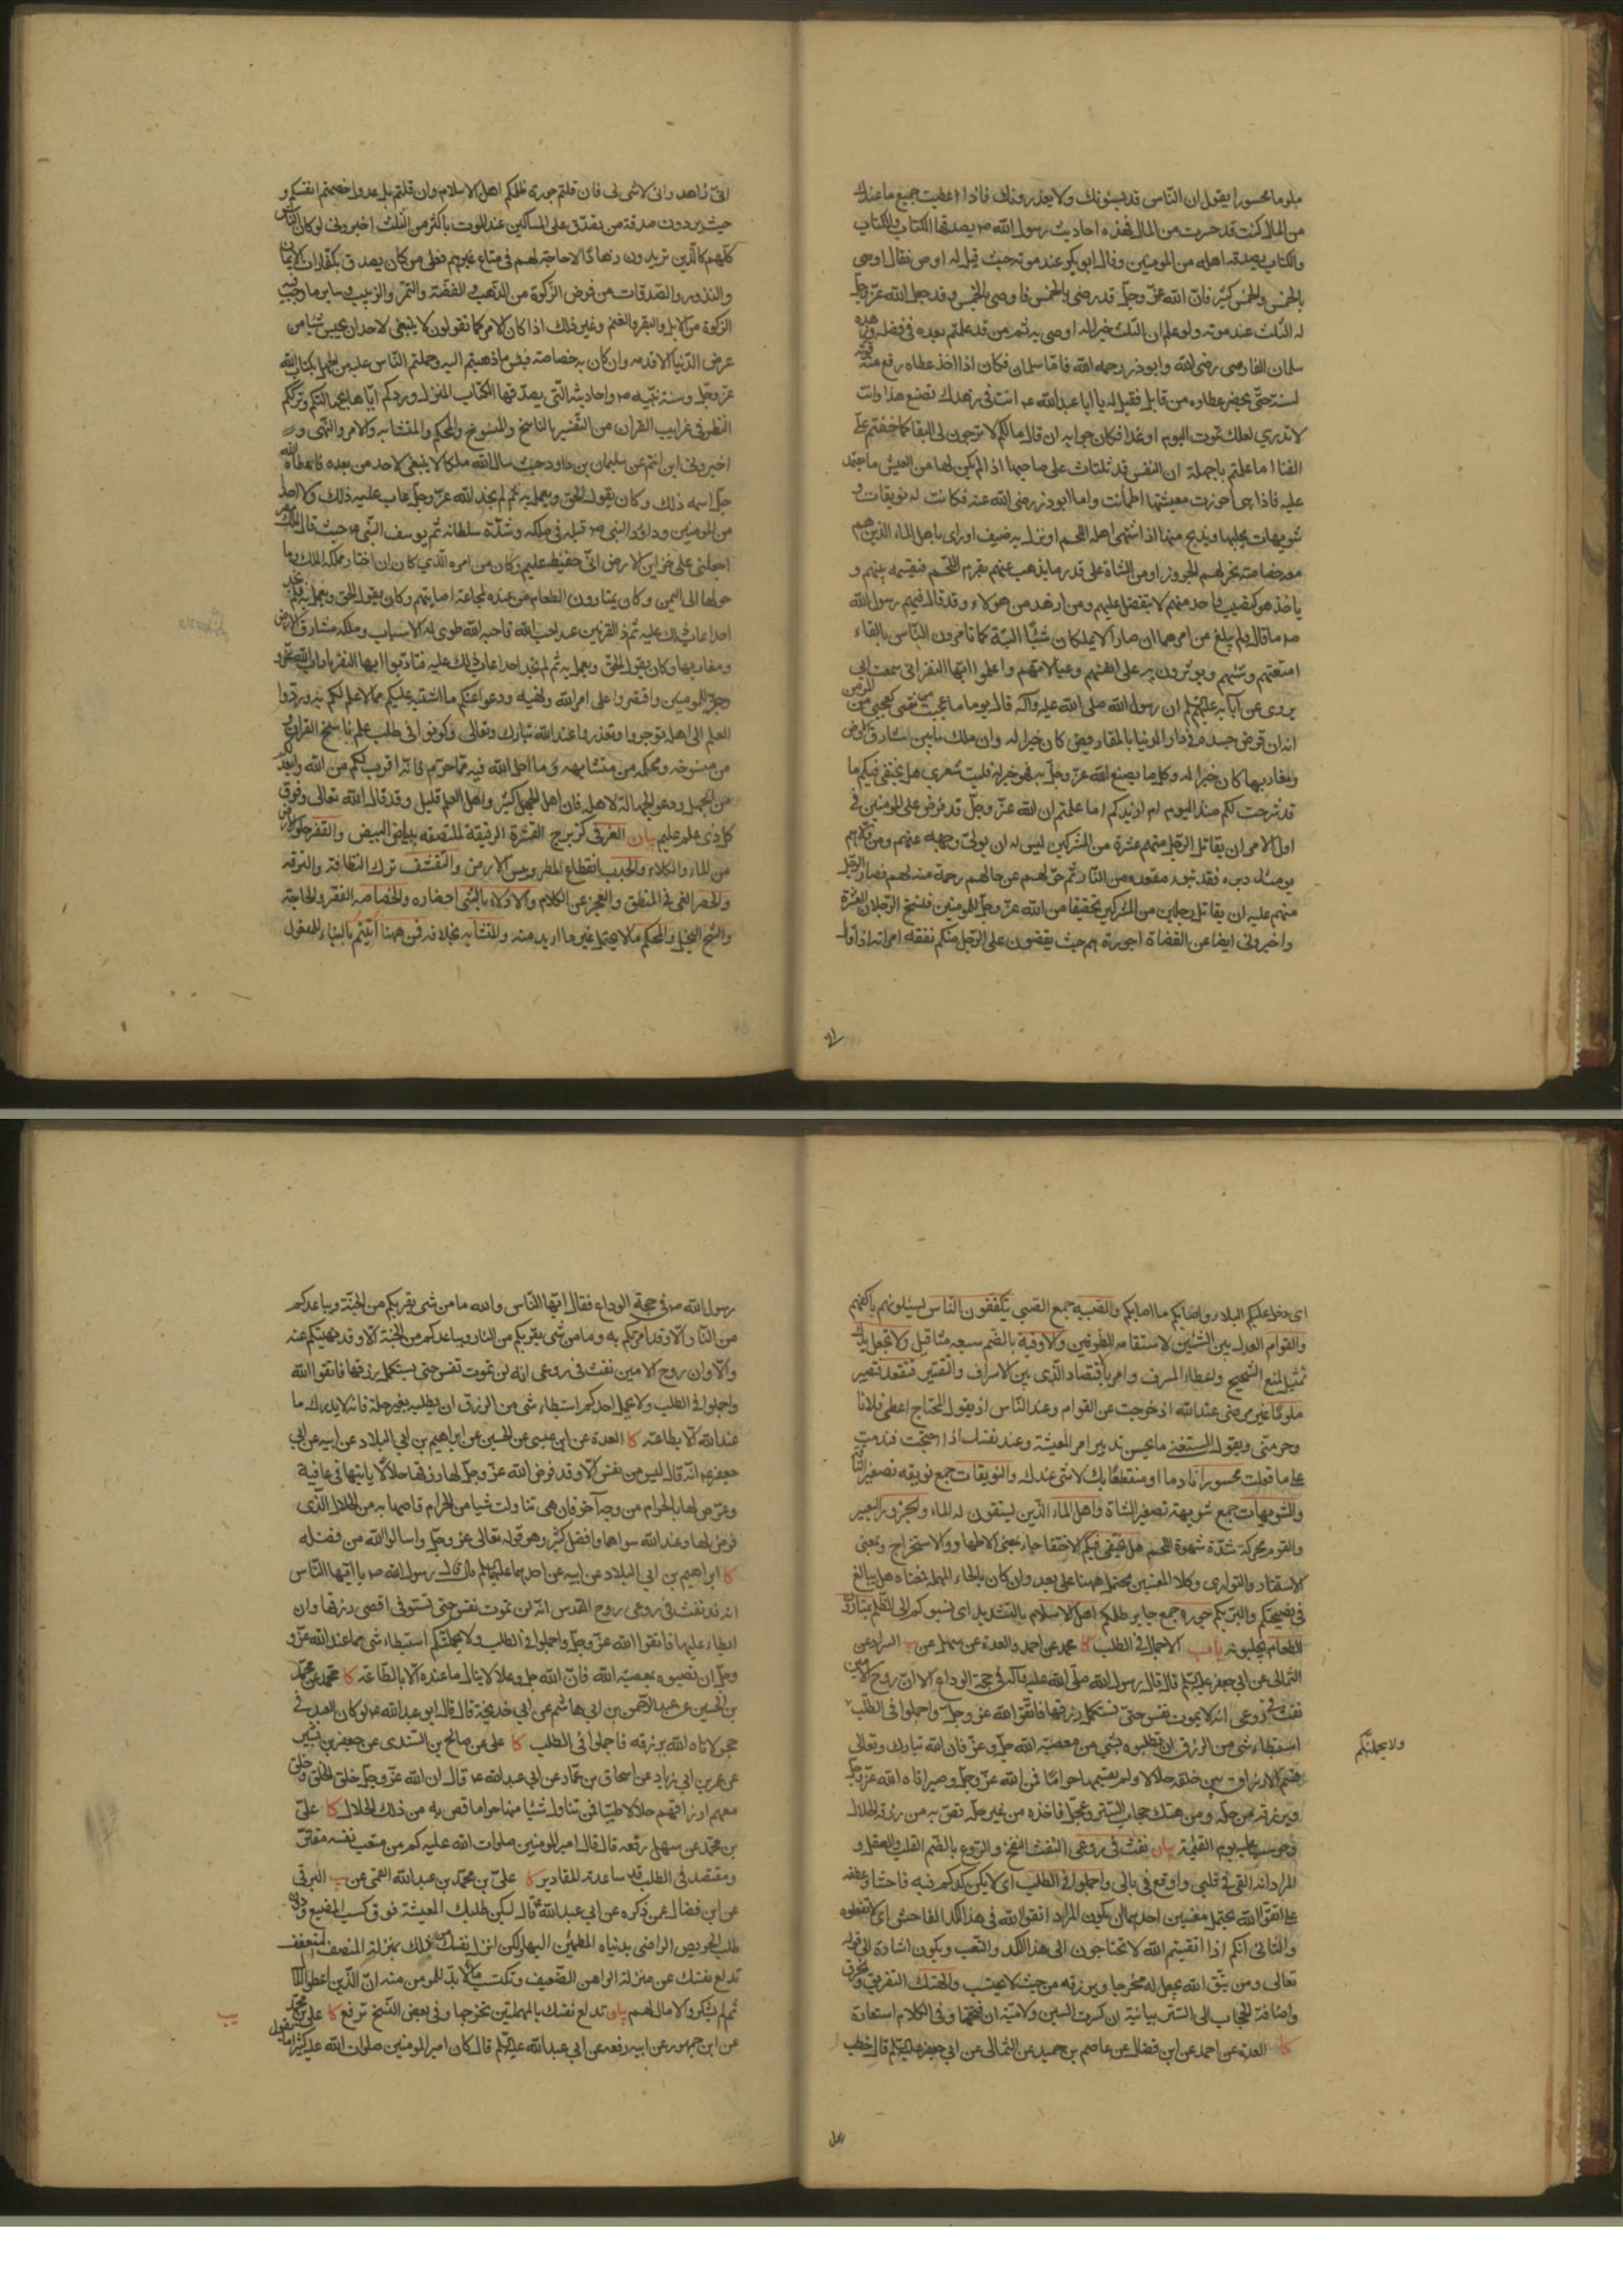 ملوما محسورا يقول ان الناس قد يسئلونك ولا يعذرونك فاذا اعطيت جميع ما عندك
من المال كنت قد حسرت من المال فهذه احاديث رسول الله ص يصدقها الكتاب والكتاب
والكتاب يصدقه اهله من المومنين وقال ابو بكر عند موته حيث قيل له اوص فقال اوصى
بالخمس والخمس كثير فان الله عز وجل قد رضى بالخمس فاوصى بالخمس وقد جعل الله عز وجل
له الثلث عند موته ولو علم ان الثلث خير له اوصى به ثم من قد علمتم بعده فى فضله وزهده
سلمان الفارسى رضى الله وابو ذر رحمه الله فاما سلمان فكان اذا اخذ عطاه رفع منه قوته
لسنته حتى يحضر عطاوه من قابل فقيل له يا ابا عبد الله انت فى زهدك تصنع هذا وانت
لا تدرى لعلك تموت اليوم او غدا فكان جوابه ان قال مالكم لا ترجون لى البقا كما خفتم على
الفنا اما علمتم يا جهلة ان النفس قد تلتاث على صاحبها اذا لم يكن لها من العيش ما يعتمد
عليه فاذا هى احرزت معيشتها اطمأنت واما ابو ذر رضى الله عنه فكانت له نويقات و
شويهات يحلبها ويذبح منها اذا اشتهى اهله اللحم او نزل به ضيف او راى باهل الماء الذين هم
معه خصاصة نحر لهم الجزور او من الشاة على قدر ما يذهب عنهم بقرم اللحم فيقسمه بينهم و
ياخذ هو كنصيب واحد منهم لا يتفضل عليهم ومن ازهد من هولاء وقد قال فيهم رسول الله
ص ما قال ولم يبلغ من امرهما ان صارا لا يملكان شيئا البتة كما تامرون الناس بالقاء
امتعتهم وشيئهم ويوثرون به على انفسهم وعيالاتهم واعلموا ايها النفر انى سمعت ابى
يروى عن آبائه عليهم السلم ان رسول الله صلى الله عليه وآله قال يوما ما عجبت من شى كعجبى من المومن
انه ان قرض جسده فى دار الدنيا بالمقاريض كان خيرا له وان ملك ما بين مشارق الارض
ومغاربها كان خيرا له وكل ما يصنع الله عز وجل به فهو خير له فليت شعرى هل يحيق فيكم ما
قد شرحت لكم منذ اليوم ام ازيدكم اما علمتم ان الله عز وجل قد فرض على المومنين فى
اول الامر ان يقاتل الرجل منهم عشرة من المشركين ليس له ان يولى وجهه عنهم ومن ولاهم
يومئذ دبره فقد تبوء مقعده من النار ثم حولهم عن حالهم رحمة منه لهم فصار الرجل
منهم عليه ان يقاتل رجلين من المشركين تخفيفا من الله عز وجل للمومنين فنسخ الرجلان العشرة
واخبرونى ايضا عن القضاة اجورة هم حيث يقضون على الرجل منكم نفقة امراته اذا قال
انى زاهد وانى لا شى لى فان قلتم جورة ظلمكم اهل الاسلام وان قلتم بل عدول خصمتم انفسكم و
حيث يردون صدقة من تصدق على المساكين عند الموت باكثر من الثلث اخبرونى لو كان الناس
كلهم كالذين تريدون زهادا لا حاجة لهم فى متاع غيرهم فعلى من كان يصدق بكفارات الايمان
والنذور والصدقات من فرض الزكوة من الذهب والفضة والتمر والزبيب وساير ما وجب فيه
الزكوة من الابل والبقر والغنم وغير ذلك اذا كان الامر كما تقولون لا ينبغى لاحد ان يحبس شيئا من
عرض الدنيا الا قدمه وان كان به خصاصة فبئس ما ذهبتم اليه وحملتم الناس عليه من الجهل بكتاب الله
عز وجل وسنة نبيه ص واحاديثه التى يصدقها الكتاب المنزل وردكم اياها بجهالتكم وترككم
النظر فى غرايب القران من التفسير بالناسخ والمنسوخ والمحكم والمتشابه والامر والنهى و
اخبرونى اين انتم عن سليمان بن داود حيث سال الله ملكا لا ينبغى لاحد من بعده فاعطاه الله
جل اسمه ذلك وكان يقول الحق ويعمل به ثم لم نجد الله عز وجل عاب عليه ذلك ولا احدا
من المومنين وداود النبى ص قبله فى ملكه وشدة سلطانه ثم يوسف النبى ص حيث قال لملك مصر
اجعلنى على خزاين الارض انى حفيظ عليم وكان من امره الذى كان ان اختار مملكة الملك وما
حولها الى اليمن وكان يمتارون الطعام من عنده لمجاعة اصابتهم وكان يقول الحق ويعمل به فلم نجد
احدا عاب ذلك عليه ثم ذو القرنين عبد احب الله فاحبه الله طوى له الاسباب وملكه مشارق الارض
ومغاربها وكان يقول الحق ويعمل به ثم لم نجد احدا عاب ذلك عليه فتادبوا ايها النفر باداب الله عز و
وجل للمومنين واقتصروا على امر الله ونهيه ودعوا عنكم ما اشتبه عليكم مما لا علم لكم به وردوا
العلم الى اهله توجروا وتعذروا عند الله تبارك وتعالى وكونوا فى طلب علم ناسخ القران
من منسوخه ومحكمه من متشابهه وما احل الله فيه مما حرم فانه اقرب لكم من الله وابعد لكم
من الجهل ودعوا الجهالة لاهلها فان اهل الجهل كثير واهل العلم قليل وقد قال الله تعالى وفوق
كل ذى علم عليم بيان الغرقى كزبرج القشرة الرقيقة لملتصقة ببياض البيض والقفر خلو الارض
من الماء والكلاء والجدب انقطاع المطر ويبس الارض والتقشف ترك النظافة والترفه
والحصر العى فى المنطق والعجز عن الكلام والادلاء بالشى احضاره والخصاصه الفقر والحاجة
والشح البخل والمحكم ما لا يحتمل غير ما اريد منه والمتشابه بخلافه فمن ههنا اتيتم بالبناء للمفعول
اى دخل عليكم البلاء واصابكم ما اصابكم والصبيه جمع الصبى يتكففون الناس يسئلونهم باكفهم
والقوام العدل بين الشيئين لاستقامه الطرفين والاوقية بالضم سبعه مثاقيل ولا تجعل يدك
تمثيل لمنع الشحيح واعطاء المسرف وامر باقتصاد الذى بين الاسراف والتقتير فتقعد فتصير
ملوما غير مرضى عند الله اذ خرجت عن القوام وعند الناس اذ يقول المحتاج اعطى فلانا
وحرمنى ويقول المستغنى ما يحسن تدبير امر المعيشة وعند نفسك اذا احتجت فندمت
على ما فعلت محسورا نادما او منقطعا بك لا شى عندك والنويقات جمع نويقه تصغير الناقه
والشويهات جمع شويهة تصغير الشاة واهل الماء الذين يستقون له الماء والجزور البعير
والقرم محركة شدة شهوة اللحم هل يختفى فيكم الاختفا جاء بمعنى الاظهار والاستخراج وبمعنى
الاستتار والتوارى وكلا المعنيين محتمل ههنا على بعد وان كان بالحاء المهملة فمعناه هل يبالغ
فى نصيحتكم والبر بكم جورة جمع جاير ظلمكم اهل الاسلام بالتشديد اى نسبوكم الى الظلم يمتارون
الطعام يجلبونه باب الاجمال فى الطلب كا محمد عن احمد والعدة عن سهل عن السراد عن
الثمالى عن ابى جعفر عليه السلم قال قال رسول الله صلى الله عليه وآله فى حجة الوداع الا ان روح الامين
نفث فى روعى انه لا يموت نفس حتى تستكمل رزقها فاتقوا الله عز وجل واجملوا فى الطلب
ولا يحملنكم
استبطاء شى من الرزق ان تطلبوه بشى من معصية الله جل وعز فان الله تبارك وتعالى
قسم الارزاق بين خلقه حلالا ولم يقسمها حراما فمن اتقى الله عز وجل وصبر اتاه الله عز وجل
ويرزقه من حله ومن هتك حجاب الستر وعجل فاخذه من غير حله قص به من رزقه الحلال
وحوسب عليه يوم القيمة بيان نفث فى روعى النفث النفخ والروع بالضم القلب والعقل و
المراد انه القى فى قلبى واوقع فى بالى واجملوا فى الطلب اى لا يكن كدكم فيه فاحشا وعطفه
على اتقوا الله يحتمل معنيين احدهما ان يكون المراد اتقوا الله فى هذا الكد الفاحش اى لا تفعلوه
والثانى انكم اذا اتقيتم الله لا تحتاجون الى هذا الكد والتعب ويكون اشارة الى قوله
تعالى ومن يتق الله يجعل له مخرجا ويرزقه من حيث لا يحتسب والهتك التفريق والخرق
واضافة الحجاب الى الستر بيانية ان كسرت السين ولامية ان فتحتها وفى الكلام استعارة
كا العدة عن احمد عن ابن فضال عن عاصم بن حميد عن الثمالى عن ابى جعفر عليه السلم قال خطب
رسول الله ص فى حجة الوداع فقال ايها الناس والله ما من شى يقربكم من الجنة ويباعدكم
من النار الا وقد امرتكم به وما من شى يقربكم من النار ويباعدكم من الجنة الا وقد نهيتكم عنه
والا وان روح الامين نفث فى روعى انه لن تموت نفس حتى يستكمل رزقها فاتقوا الله
واجملوا فى الطلب ولا يحمل احدكم استبطاء شى من الرزق ان يطلبه بغير حله فانه لا يدرك ما
عند الله الا بطاعته كا العدة عن ابن عيسى عن الحسين عن ابراهيم بن ابى البلاد عن ابيه عن ابى
جعفر انه قال ليس من نفس الا وقد فرض الله عز وجل لها رزقها حلالا ياتيها فى عافية
وعرض لها بالحرام من وجه آخر فان هى تناولت شيا من الحرام قاصها به من الحلال الذى
فرض لها وعند الله سواهما وافضل كثير وهو قوله تعالى عز وجل واسالوا الله من فضله
كا ابراهيم بن ابى البلاد عن ابيه عن احدهما عليهما السلم قال قال رسول الله ص يا ايها الناس
انه قد نفث فى روعى روح القدس انه لن تموت نفس حتى تستوفى اقصى رزقها وان
ابطاء عليها فاتقوا الله عز وجل واجملوا فى الطلب ولا يحملنكم استبطاء شى مما عند الله عز و
وجل ان تصيبوه بمعصية الله فان الله جل وعلا لا ينال ما عنده الا بالطاعة كا محمد عن محمد
بن الحسين عن عبد الرحمن بن ابى هاشم عن ابى خديجة قال قال ابو عبد الله لو كان العبد فى
حجر لاتاه الله برزقه فاجملوا فى الطلب كا على عن صالح بن السندى عن جعفر بن بشير
عن عمر بن ابى زياد عن اسحاق بن عمار عن ابى عبد الله ع قال ان الله عز وجل خلق الخلق وخلق
معهم ارزاقهم حلالا طيبا فمن تناول شيئا منها حراما قص به من ذلك الحلال كا على
بن محمد عن سهل رفعه قال قال امير المومنين صلوات الله عليه كم من متعب نفسه مقتر
ومقتصد فى الطلب قد ساعدته المقادير كا على بن محمد بن عبد الله القمى عن البرقى
عن ابن فضال عمن ذكره عن ابى عبد الله ع قال ليكن طلبك المعيشة فوق كسب المضيع ودون
طلب الحريص الراضى بدنياه المطمئن اليها ولكن انزل نفسك من ذلك بمنزلة المنصف المتعفف
تدلع نفسك عن منزلة الواهن الضعيف وتكتسب ما لا بد للمومن منه ان الذين اعطوا المال
ثم لم يشكروا لا مال لهم بيان تدلع نفسك بالمهملتين تخرجها وفى بعض النسخ ترفع كا على بن محمد
عن ابن جمهور عن ابيه رفعه عن ابى عبد الله عليه السلم قال كان امير المومنين صلوات الله عليه كثيرا ما يقول
يب